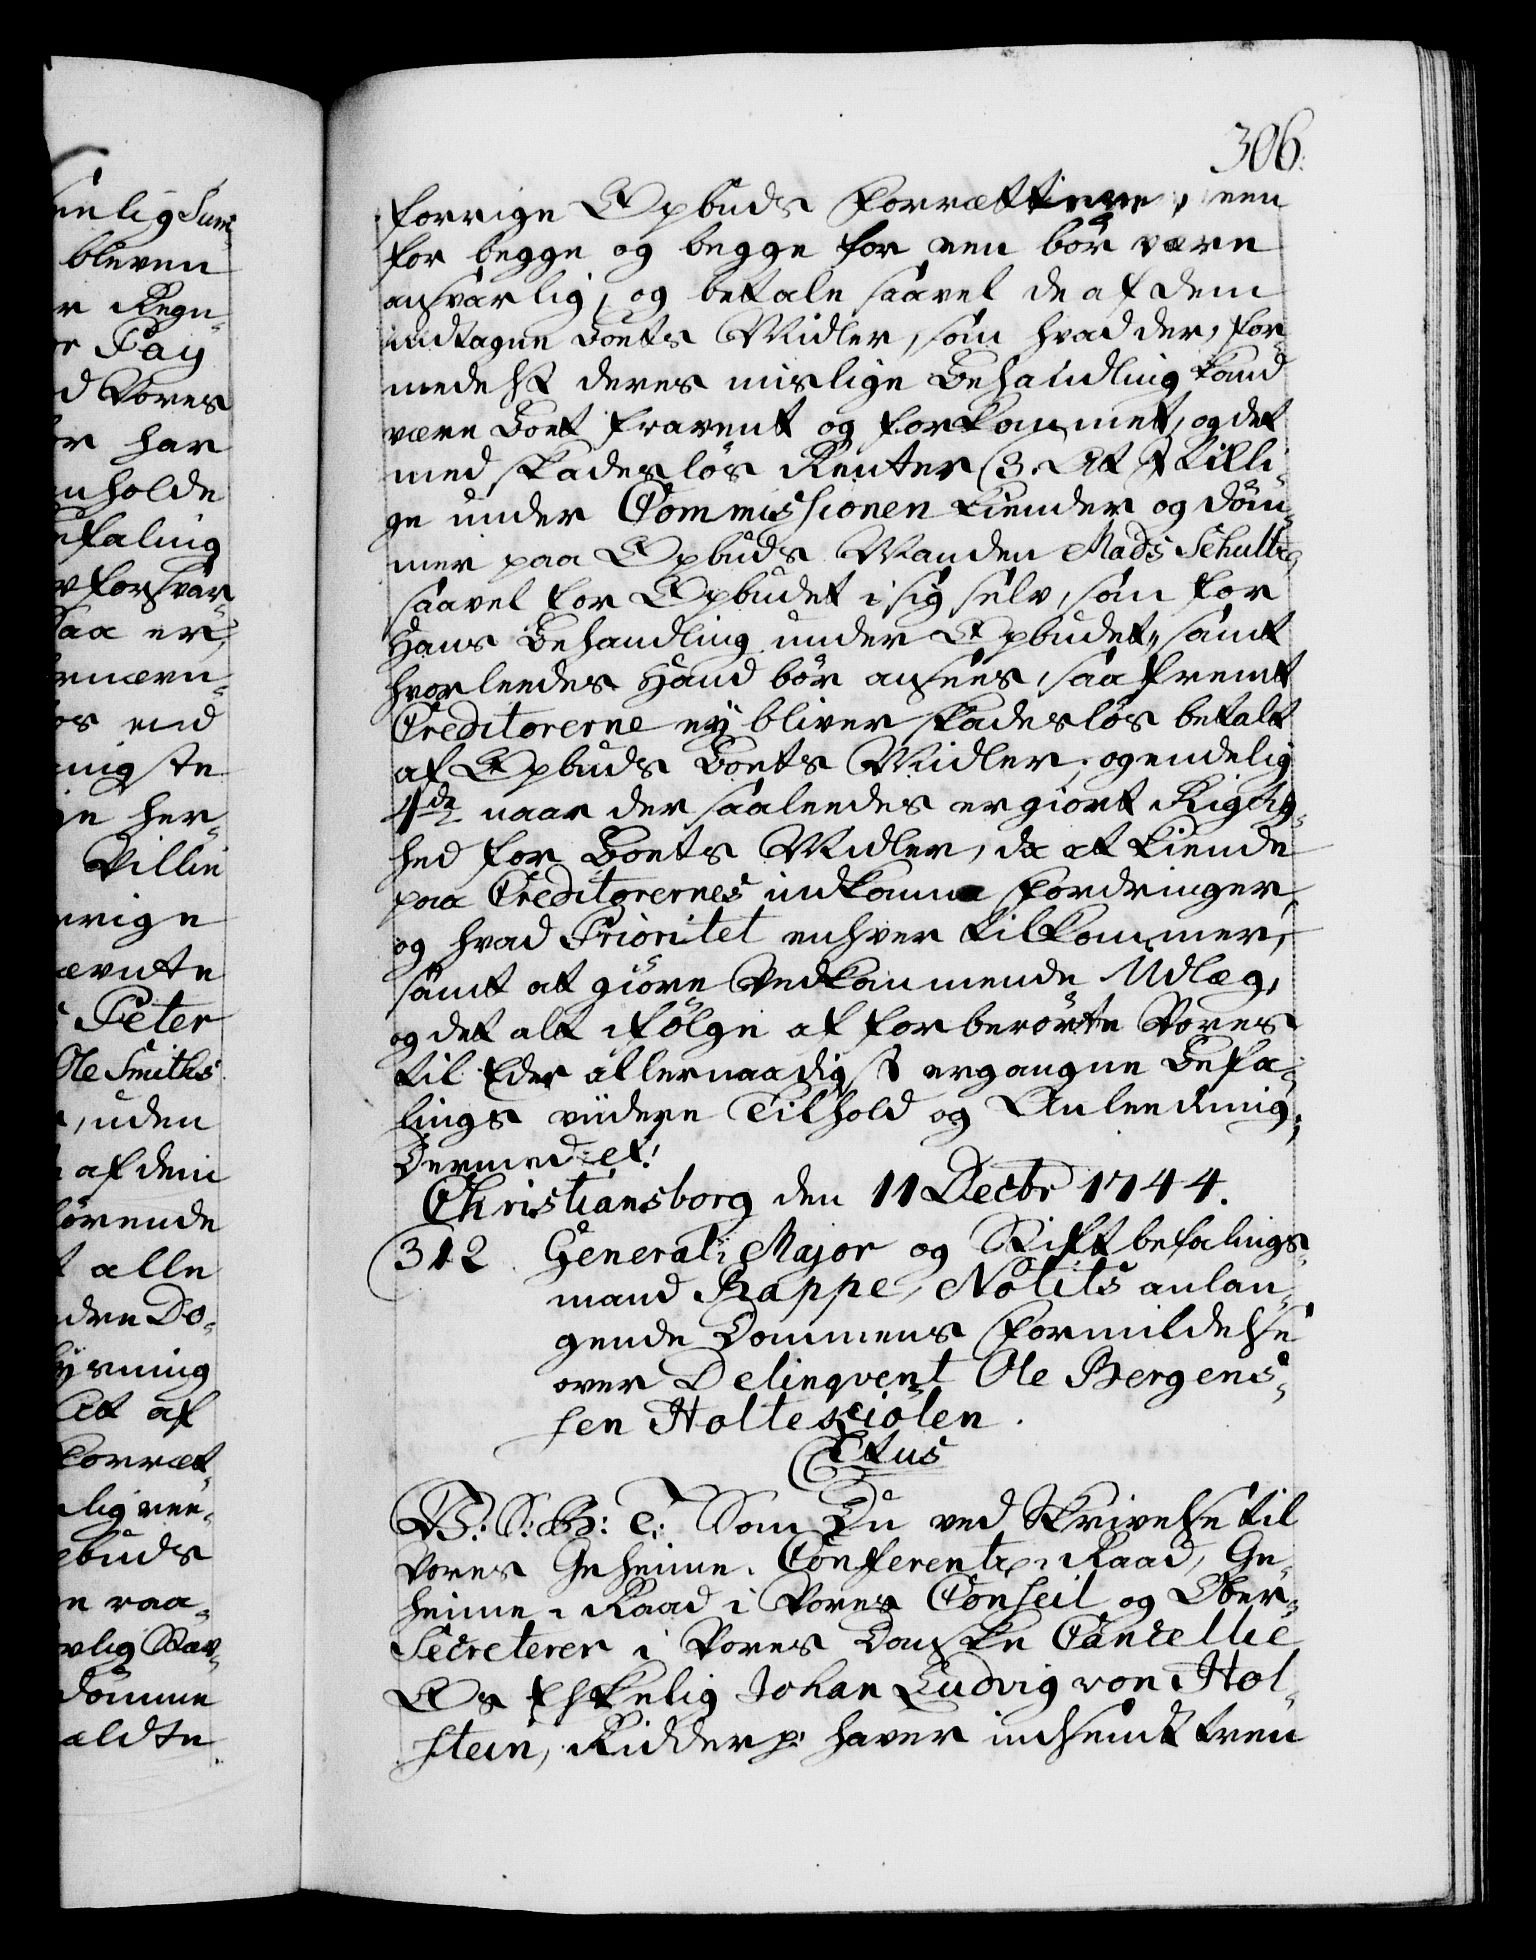 306.
forrige Opbuds Forrættere, een
for begge og begge for een bör være
ansvarlig, og betale saavel de af dem
indtagne Boets Midler, som hvad der, for-
medelst deres mislige Behandling kand
være Boet fravent og forkommet, og det
med skadeslös Renter 3. At I tilli-
ge under Commissionen kiender og döm-
mer paa Opbuds Manden Mads Schultz
saavel for Opbudet i sig selv, som for
Hans Behandling under Opbudet, samt
hvorleedes Hand bör ansees, saafremt
Creditorerne ey bliver skadeslös betalt
af Opbuds Boets Midler; og endelig
4de naar der saaleedes er giort Rigtig-
hed for Boets Midler, da at kiende
paa Creditorernes indkomne Fordringer,
og hvad Prioritet enhver tilkommer,
samt at giöre Vedkommende Udlæg,
og det alt ifölge af forberörte Vores
til Eder allernaadigst ergangne Befa-
lings viidere Tilhold og Anleedning.
Dermed et:
Christiansborg den 11 Decbr 1744.
312 General-Major og Stiftbefalings-
mand Rappe, Notits anlan-
gende Dommens Formildelse
over Delinqvent Ole Bergens-
sen Holteskiolen.
Ctus
V: S: G: T: Som Du ved Skrivelse til
Vores Geheime-Conferentz-Raad, Ge-
heime-Raad i Vores Conseil og Ober-
Secreterer i Vores Danske Cancellie
Os Elskelig Johan Ludvig von Hol-
stein, Ridder p: haver indsendt tven
enlig Sum-
bleven
r Regn-
r Fay
d Vores
r har
nholde
efaling
forsvar-
saa er,
rnævn-
os end
nigste
je her-
Villie
rrige
ævnte
Peter
Ole Smiths
, uden
af dem
örende
t alle
dre Do-
ysning
At af
Forræt-
lig vee-
pbuds
n raa-
vlig Bær-
dömme
ældte